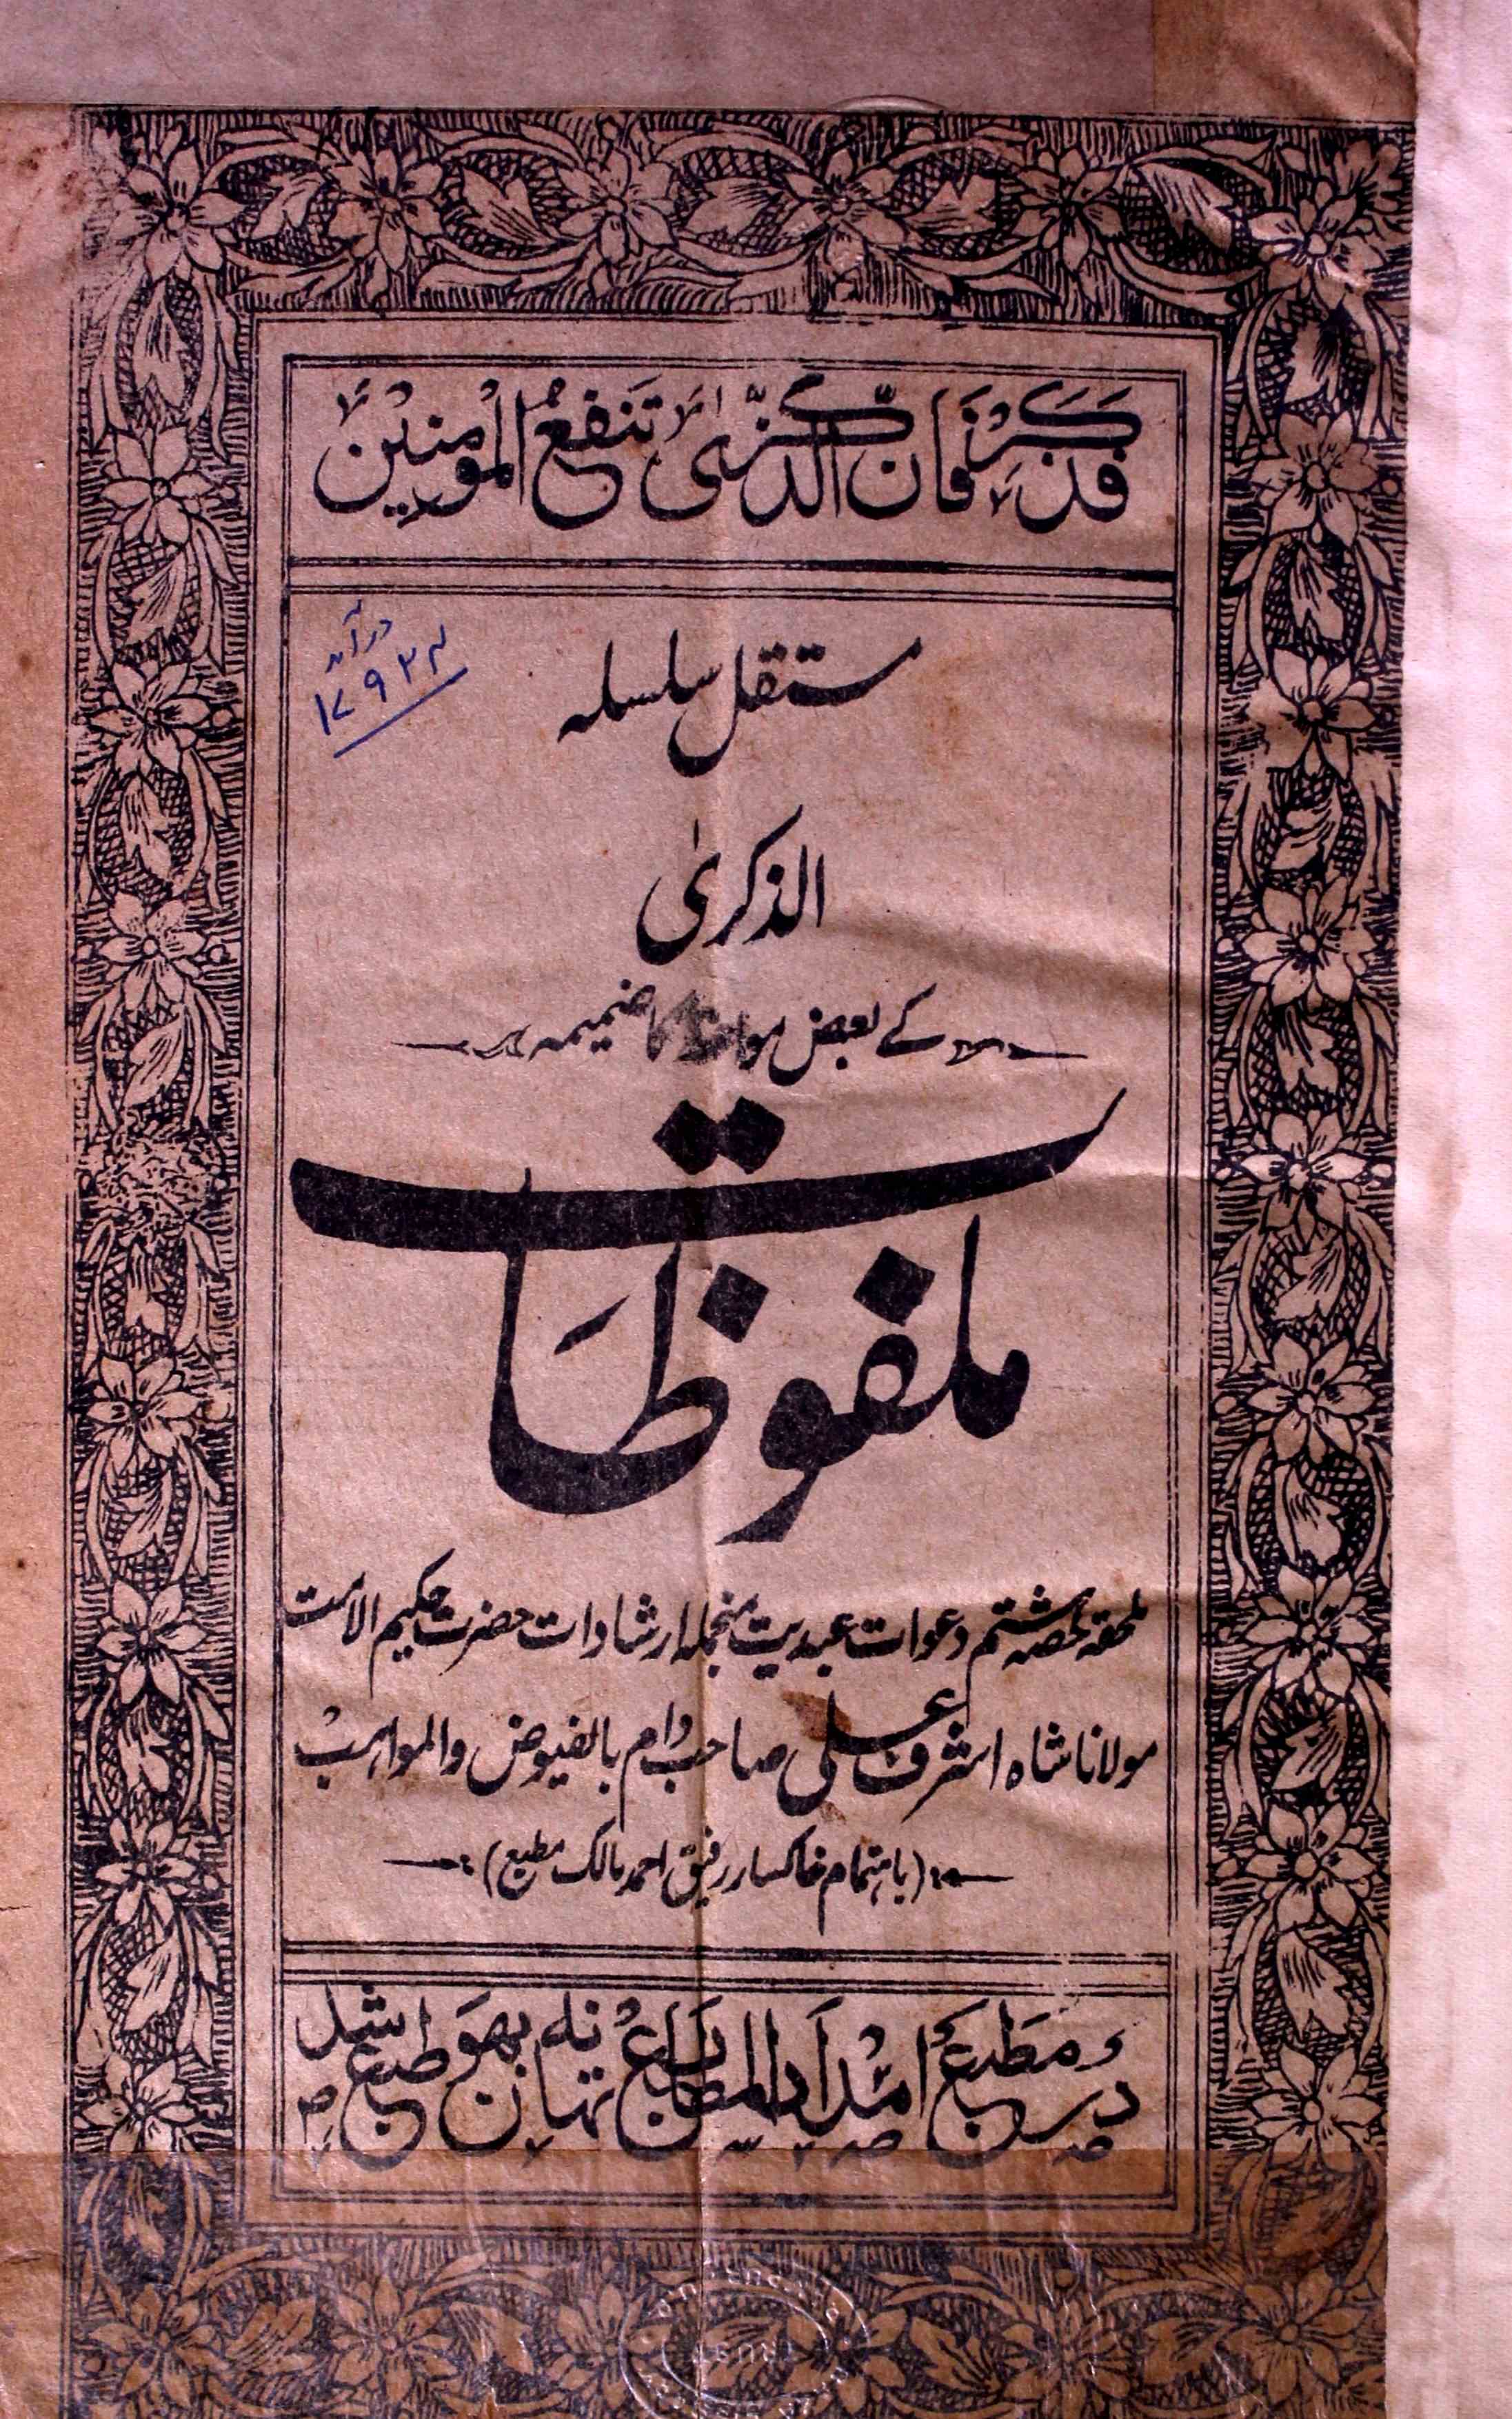 فَذَكِّرْ فَاِنَّ الذِّكْرٰی تَنْفَعُ الْمُؤْمِنِیْنَ
در آمد
۱۷۹۲۴
مستقل سلسلہ
الذکریٰ
کے بعض مواعظ کا ضمیمہ
ملفوظات
ملحقہ حصہ ہشتم دعوات عبدیت منجملہ ارشادات حضرت حکیم الامت
مولانا شاہ اشرف علی صاحب دام بالفیوض والمواہب
(باہتمام خاکسار رفیق احمد مالک مطبع)
در مطبع امداد المطابع تھانہ بھون طبع شد